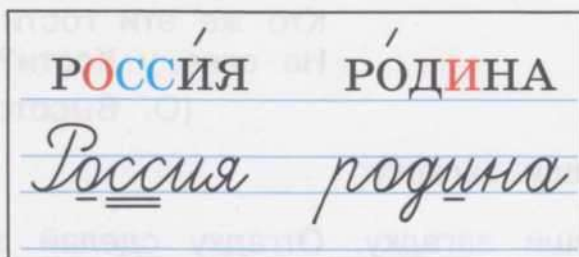 РОССИ́Я РО́ДИНА
Россия родина